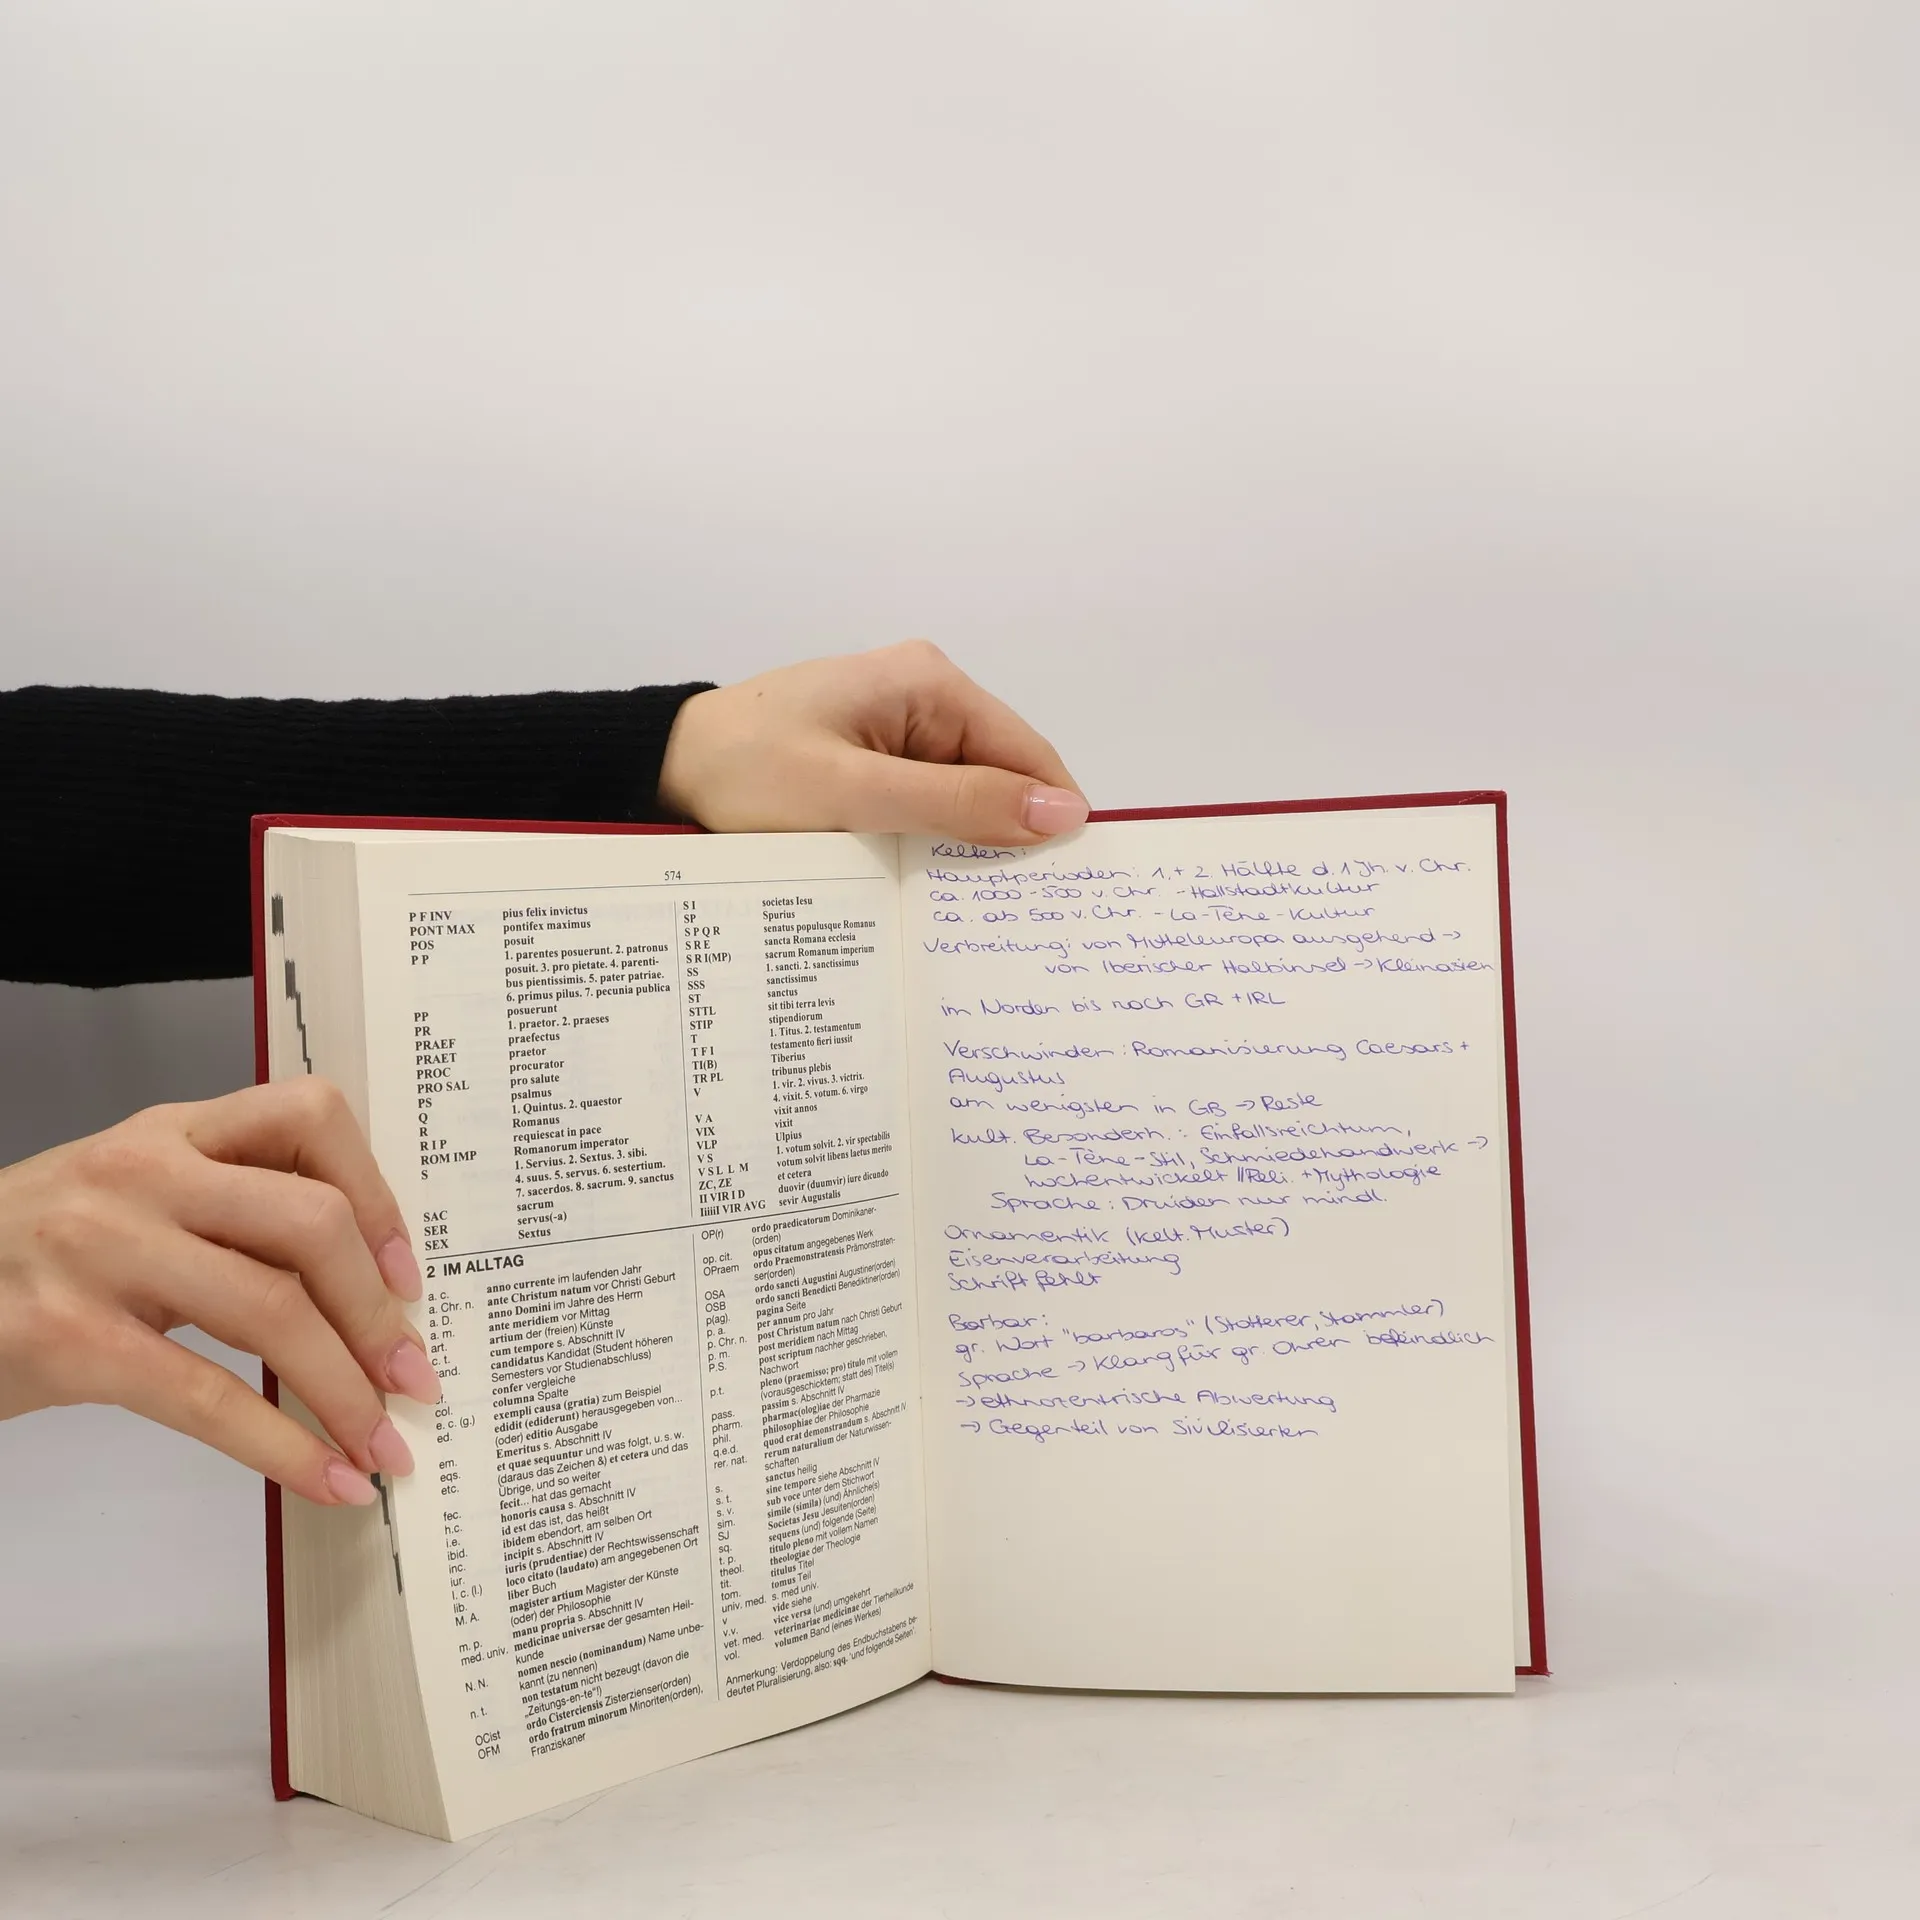 574
P F INV pius felix invictus
PONT MAX pontifex maximus
POS posuit
P P 1. parentes posuerunt. 2. patronus
posuit. 3. pro pietate. 4. parenti-
bus pientissimis. 5. pater patriae.
6. primus pilus. 7. pecunia publica
posuerunt
PP 1. praetor. 2. praeses
PR praefectus
PRAEF praetor
PRAET procurator
PROC pro salute
PRO SAL psalmus
PS 1. Quintus. 2. quaestor
Q Romanus
R requiescat in pace
R I P Romanorum imperator
ROM IMP 1. Servius. 2. Sextus. 3. sibi.
S 4. suus. 5. servus. 6. sestertium.
7. sacerdos. 8. sacrum. 9. sanctus
SAC sacrum
SER servus(-a)
SEX Sextus
S I societas Iesu
SP Spurius
S P Q R senatus populusque Romanus
S R E sancta Romana ecclesia
S R I(MP) sacrum Romanum imperium
SS 1. sancti. 2. sanctissimus
SSS sanctissimus
ST sanctus
STTL sit tibi terra levis
STIP stipendiorum
T 1. Titus. 2. testamentum
T F I testamento fieri iussit
TI(B) Tiberius
TR PL tribunus plebis
V 1. vir. 2. vivus. 3. victrix.
4. vixit. 5. votum. 6. virgo
V A vixit annos
VIX vixit
VLP Ulpius
V S 1. votum solvit. 2. vir spectabilis
V S L L M votum solvit libens laetus merito
ZC, ZE et cetera
II VIR I D duovir (duumvir) iure dicundo
IiiiiI VIR AVG sevir Augustalis
2 IM ALLTAG
a. c. anno currente im laufenden Jahr
a. Chr. n. ante Christum natum vor Christi Geburt
a. D. anno Domini im Jahre des Herrn
a. m. ante meridiem vor Mittag
art. artium der (freien) Künste
c. t. cum tempore s. Abschnitt IV
cand. candidatus Kandidat (Student höheren
Semesters vor Studienabschluss)
cf. confer vergleiche
col. columna Spalte
e. c. (g.) exempli causa (gratia) zum Beispiel
ed. edidit (ediderunt) herausgegeben von...
(oder) editio Ausgabe
em. Emeritus s. Abschnitt IV
eqs. et quae sequuntur und was folgt, u. s. w.
etc. (daraus das Zeichen &) et cetera und das
Übrige, und so weiter
fec. fecit... hat das gemacht
h.c. honoris causa s. Abschnitt IV
i.e. id est das ist, das heißt
ibid. ibidem ebendort, am selben Ort
inc. incipit s. Abschnitt IV
iur. iuris (prudentiae) der Rechtswissenschaft
l. c. (l.) loco citato (laudato) am angegebenen Ort
lib. liber Buch
M. A. magister artium Magister der Künste
(oder) der Philosophie
m. p. manu propria s. Abschnitt IV
med. univ. medicinae universae der gesamten Heil-
kunde
N. N. nomen nescio (nominandum) Name unbe-
kannt (zu nennen)
n. t. non testatum nicht bezeugt (davon die
„Zeitungs-en-te“!)
OCist ordo Cisterciensis Zisterzienser(orden)
OFM ordo fratrum minorum Minoriten(orden),
Franziskaner
OP(r) ordo praedicatorum Dominikaner-
(orden)
op. cit. opus citatum angegebenes Werk
OPraem ordo Praemonstratensis Prämonstraten-
ser(orden)
OSA ordo sancti Augustini Augustiner(orden)
OSB ordo sancti Benedicti Benediktiner(orden)
p(ag). pagina Seite
p. a. per annum pro Jahr
p. Chr. n. post Christum natum nach Christi Geburt
p. m. post meridiem nach Mittag
P.S. post scriptum nachher geschrieben,
Nachwort
p.t. pleno (praemisso; pro) titulo mit vollem
(vorausgeschicktem; statt des) Titel(s)
pass. passim s. Abschnitt IV
pharm. pharmac(olog)iae der Pharmazie
phil. philosophiae der Philosophie
q.e.d. quod erat demonstrandum s. Abschnitt IV
rer. nat. rerum naturalium der Naturwissen-
schaften
s. sanctus heilig
s. t. sine tempore siehe Abschnitt IV
s. v. sub voce unter dem Stichwort
sim. simile (simila) (und) Ähnliche(s)
SJ Societas Jesu Jesuiten(orden)
sq. sequens (und) folgende (Seite)
t. p. titulo pleno mit vollem Namen
theol. theologiae der Theologie
tit. titulus Titel
tom. tomus Teil
univ. med. s. med univ.
v vide siehe
v.v. vice versa (und) umgekehrt
vet. med. veterinariae medicinae der Tierheilkunde
vol. volumen Band (eines Werkes)
Anmerkung: Verdoppelung des Endbuchstabens be-
deutet Pluralisierung, also: sqq. 'und folgende Seiten'.
Kelten:
Hauptperioden: 1.+ 2. Hälfte d. 1 Jh. v. Chr.
ca. 1000 - 500 v. Chr. - Hallstadtkultur
ca. ab 500 v. Chr. - La-Tène-Kultur
Verbreitung: von Mitteleuropa ausgehend →
von Iberischer Halbinsel → Kleinasien
im Norden bis nach GR + IRL
Verschwinden: Romanisierung Caesars +
Augustus
am wenigsten in GB → Reste
kult. Besonderh.: Einfallsreichtum,
La-Tène-Stil, Schmiedehandwerk →
hochentwickelt // Reli. + Mythologie
Sprache: Druiden nur mündl.
Ornamentik (kelt. Muster)
Eisenverarbeitung
Schrift fehlt
Barbar:
gr. Wort "barbaros" (Stotterer, Stammler)
Sprache → Klang für gr. Ohren befindlich
→ ethnozentrische Abwertung
→ Gegenteil von Sivilisierten